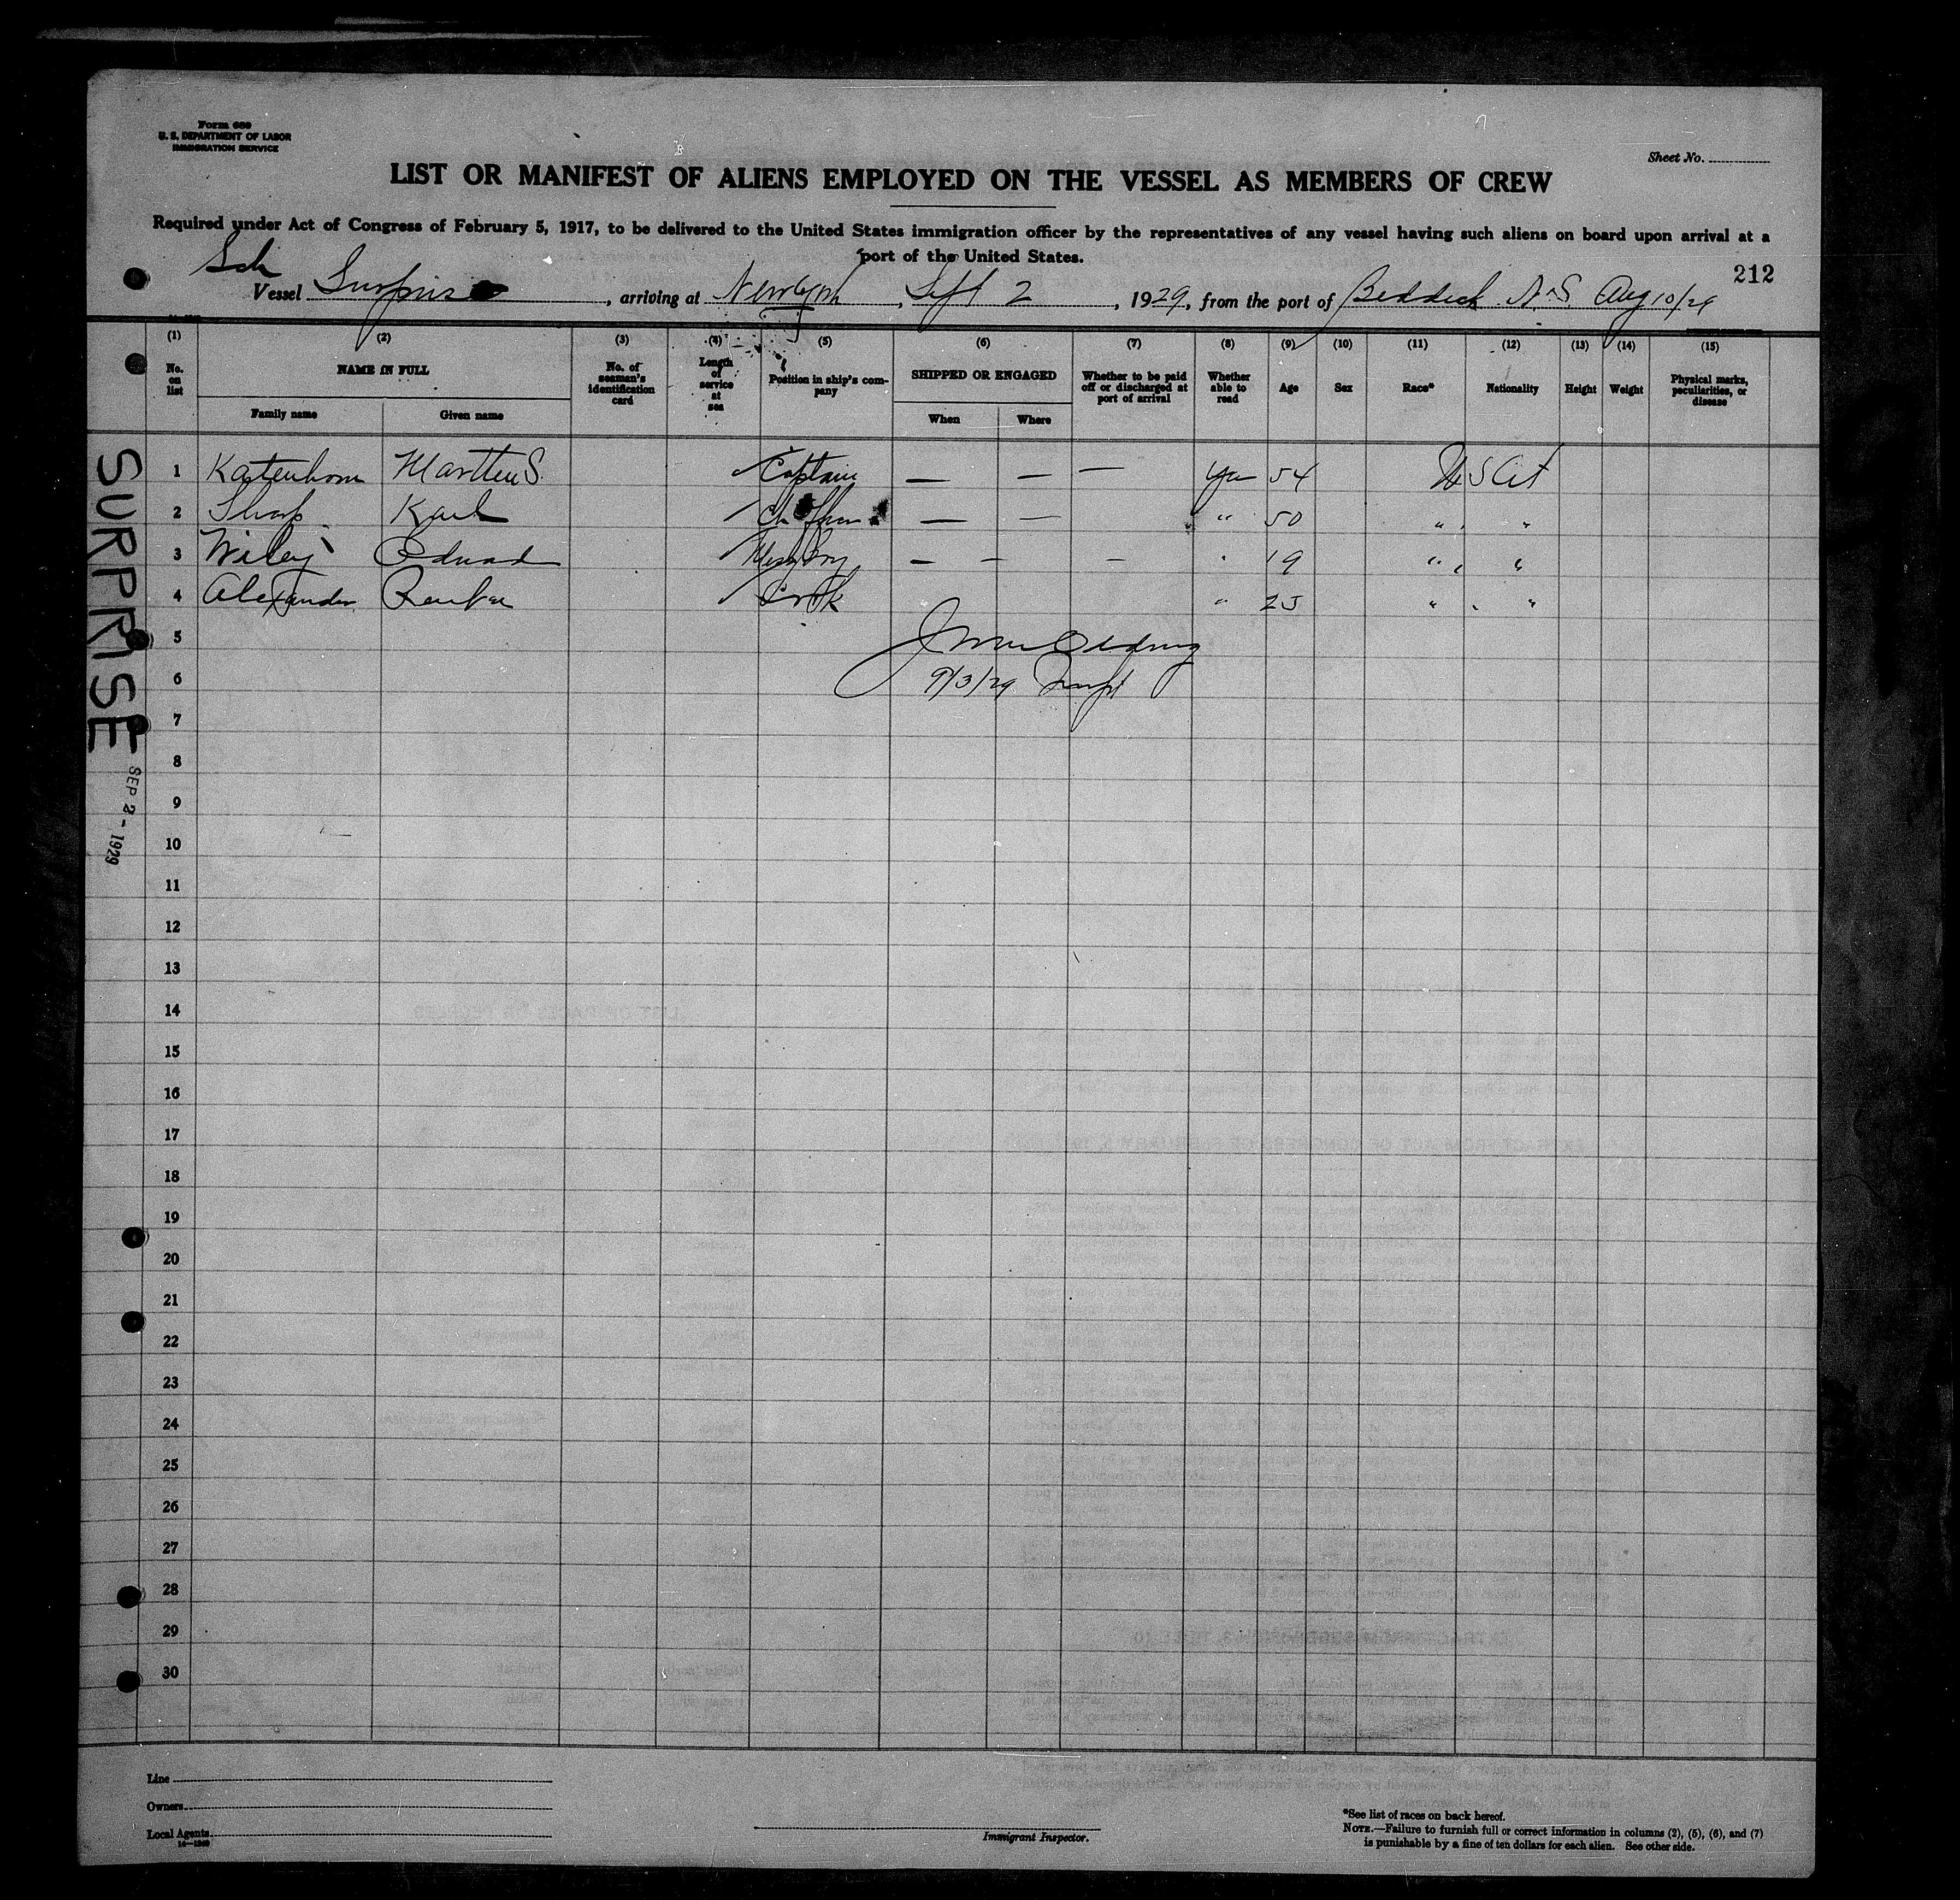 Form 680
U. S. DEPARTMENT OF LABOR
IMMIGRATION SERVICE
Sheet No.
LIST OR MANIFEST OF ALIENS EMPLOYED ON THE VESSEL AS MEMBERS OF CREW
Required under Act of Congress of February 5, 1917, to be delivered to the United States immigration officer by the representatives of any vessel having such aliens on board upon arrival at a
port of the United States.
212
Sch
Vessel Surprise, arriving at New York, Sept 2, 1929, from the port of Beddeck N.S. Aug 10/29
(1) (2) (3) (4) (5) (6) (7) (8) (9) (10) (11) (12) (13) (14) (15)
No. on list NAME IN FULL No. of seaman's identification card Length of service at sea Position in ship's company SHIPPED OR ENGAGED Whether to be paid off or discharged at port of arrival Whether able to read Age Sex Race* Nationality Height Weight Physical marks, peculiarities, or disease
Family name Given name When Where
1 Katenhorn S. Captain — — — Yes 54 U S Cit
2 Sharp Karl — — " 50 " "
3 Wiley Edward Mess Boy — — — " 19 " "
4 Alexander Cook " 25 " "
5
6 9/3/29 Insp
7
8
9
10
11
12
13
14
15
16
17
18
19
20
21
22
23
24
25
26
27
28
29
30
SURPRISE
SEP 2 - 1929
Line
Owners
Local Agents
Immigrant Inspector.
*See list of races on back hereof.
NOTE.—Failure to furnish full or correct information in columns (2), (5), (6), and (7)
is punishable by a fine of ten dollars for each alien. See other side.